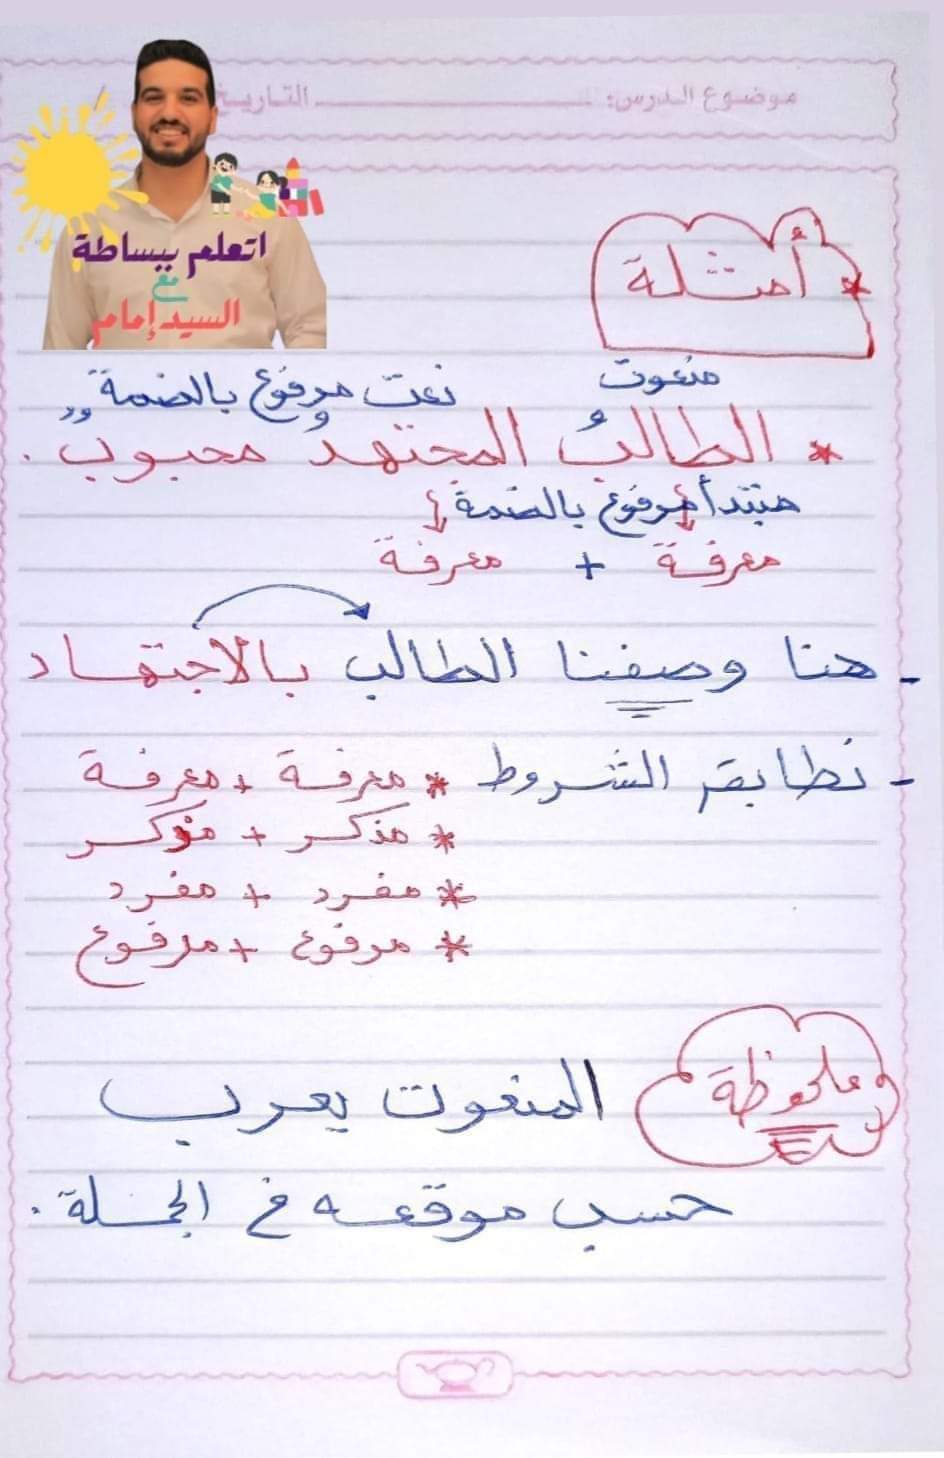 موضوع الدرس: التاريخ
اتعلم ببساطة
مع
السيد إمام
* أمثلة
منعوت نعت مرفوع بالضمة
* الطالبُ المجتهدُ محبوبٌ .
مبتدأ مرفوع بالضمة
معرفة + معرفة
- هنا وصفنا الطالب بالاجتهاد
- تطابق الشروط * معرفة + معرفة
* مذكر + مذكر
* مفرد + مفرد
* مرفوع + مرفوع
ملحوظة المنعوت يعرب
حسب موقعه في الجملة .